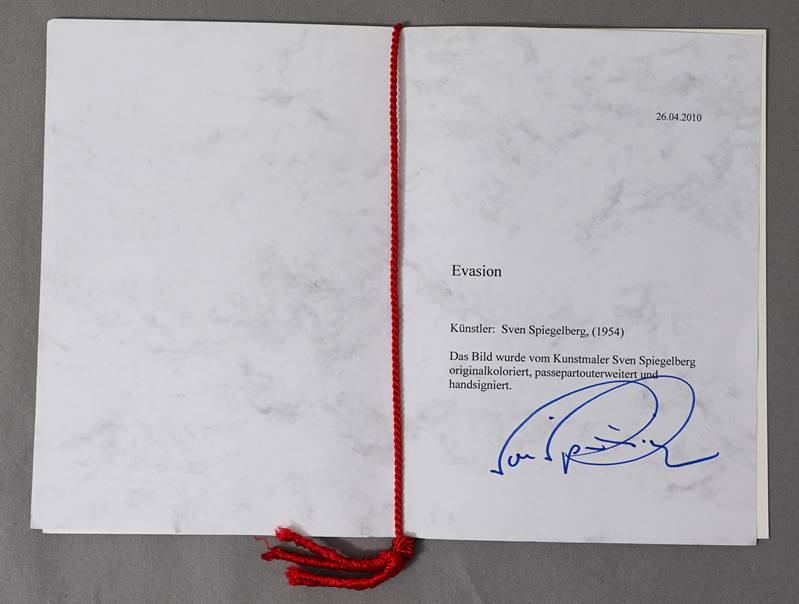 26.04.2010
Evasion
Künstler: Sven Spiegelberg, (1954)
Das Bild wurde vom Kunstmaler Sven Spiegelberg
originalkoloriert, passepartouterweitert und
handsigniert.